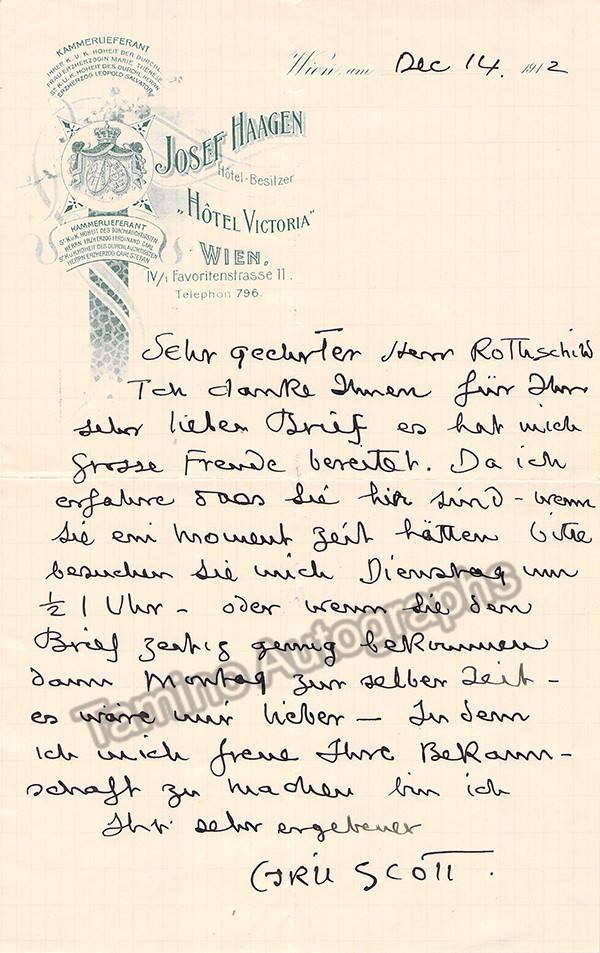 KAMMERLIEFERANT
IHRER K. U. K. HOHEIT DER DURCHL.
FRAU ERZHERZOGIN MARIE THERESE
Sr. K. U. K. HOHEIT DES DURCHL. HERRN
ERZHERZOG LEOPOLD SALVATOR
Wien, am Dec 14. 1912
JOSEF HAAGEN
Hôtel-Besitzer
„HÔTEL VICTORIA"
WIEN,
IV/1 Favoritenstrasse 11.
Telephon 796.
KAMMERLIEFERANT
Sr. K. u. K. HOHEIT DES DURCHLAUCHTIGSTEN
HERRN ERZHERZOG FERDINAND CARL
Sr. K. u. K. HOHEIT DES DURCHLAUCHTIGSTEN
HERRN ERZHERZOG CARL STEFAN
Sehr geehrter Herr Rothschild
Ich danke Ihnen für Ihr
sehr lieben Brief es hat mich
grosse Freude bereitet. Da ich
erfahre dass Sie hier sind – wenn
Sie ein moment zeit hätten bitte
besuchen Sie mich Dienstag um
½ 1 Uhr – oder wenn Sie den
Brief zeitig genug bekommen
dann Montag zur selber Zeit –
es wäre mir lieber – In dem
ich mich freue Ihre Bekann-
schaft zu machen bin ich
Ihr sehr ergebener
Cyril Scott.
Tamino Autographs